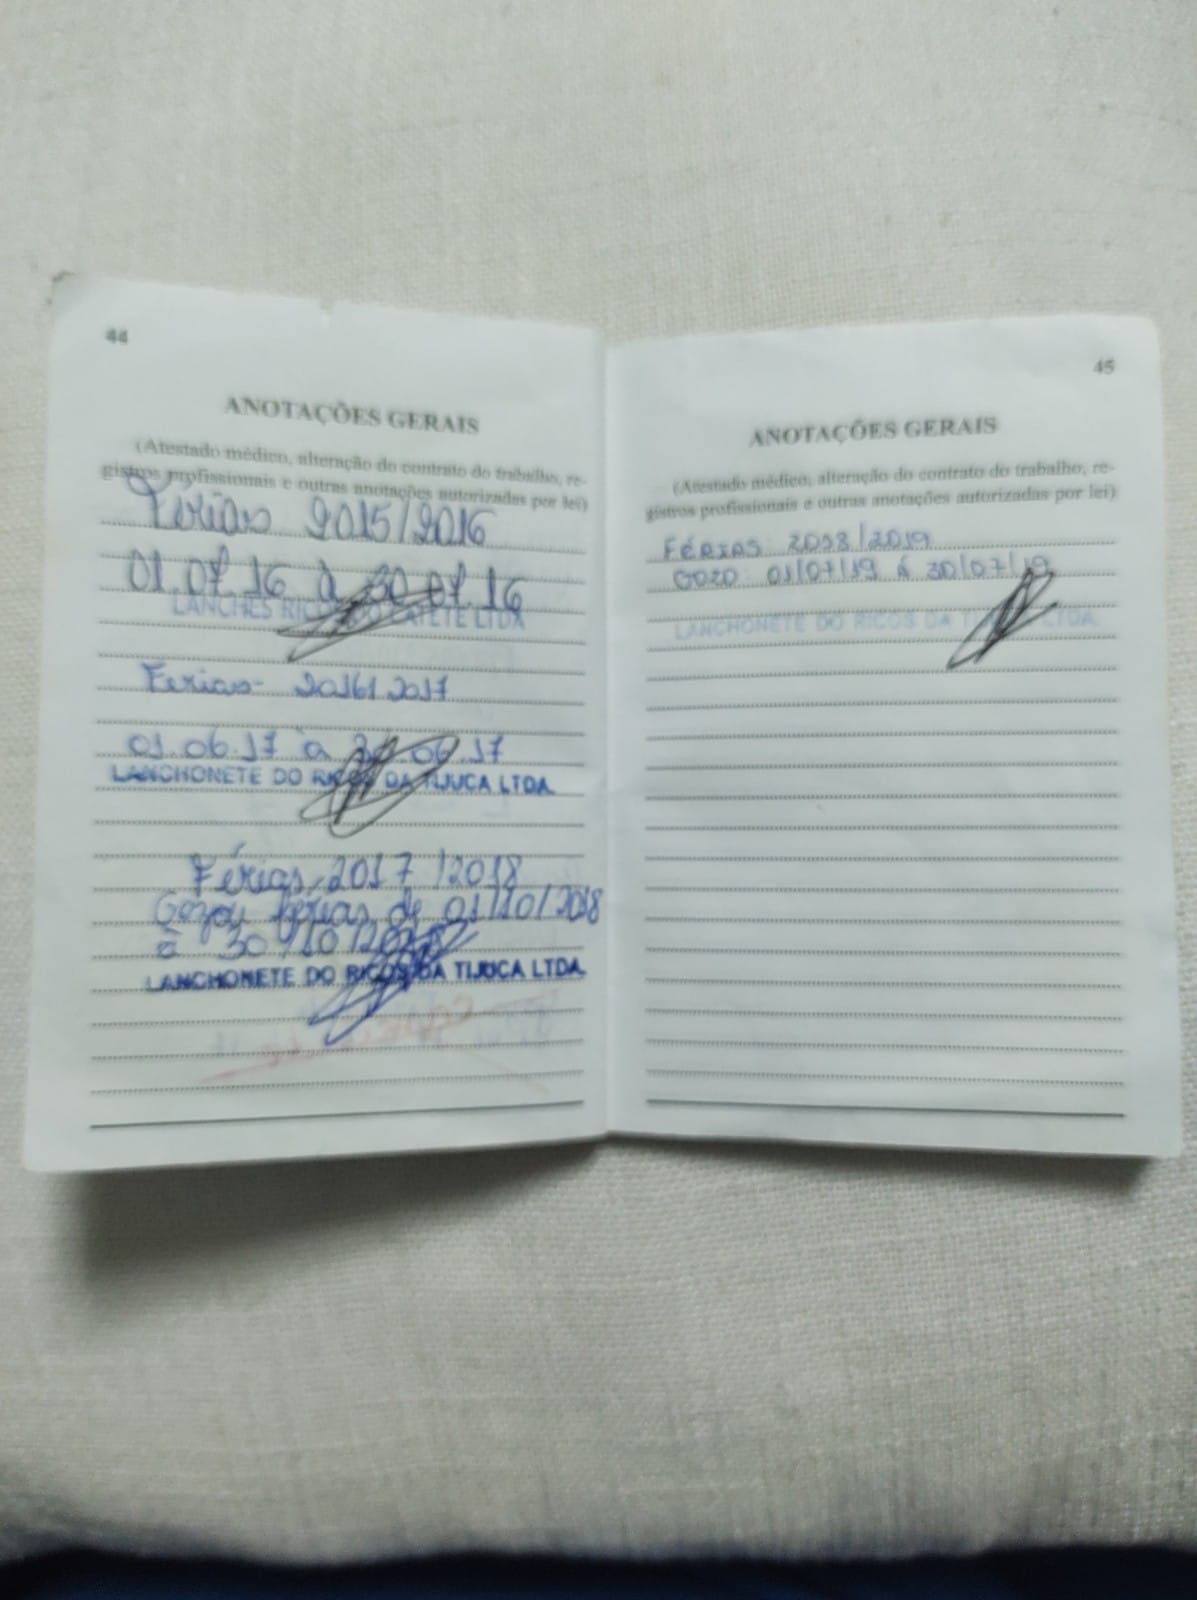 44
ANOTAÇÕES GERAIS
(Atestado médico, alteração do contrato do trabalho, re-
gistros profissionais e outras anotações autorizadas por lei)
Ferias 2015/2016
01.07.16 à 30.07.16
LANCHES RICOS DO CATETE LTDA
Ferias- 2016/2017
01.06.17 a 30.06.17
LANCHONETE DO RICOS DA TIJUCA LTDA.
Férias, 2017/2018
Gozou ferias de 01/10/2018
à 30/10/2018
LANCHONETE DO RICOS DA TIJUCA LTDA.
45
ANOTAÇÕES GERAIS
(Atestado médico, alteração do contrato do trabalho, re-
gistros profissionais e outras anotações autorizadas por lei)
FÉRIAS: 2018/2019
GOZO: 01/07/19 Á 30/07/19
LANCHONETE DO RICOS DA TIJUCA LTDA.